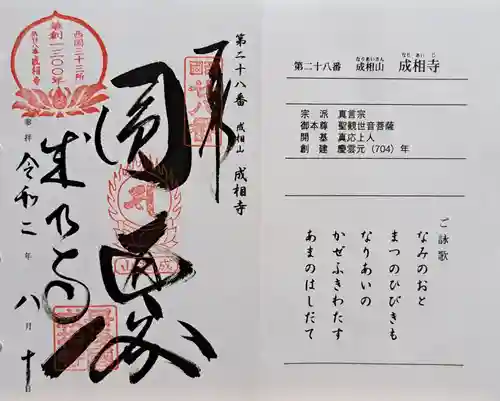 第二十八番 成相山 成相寺
西国三十三所
草創一三〇〇年
第廿八番成相寺
奉拝
令和二年八月十日
圓通閣
成相寺
第二十八番 成相山 成相寺
なりあいさん
なりあいじ
宗派 真言宗
御本尊 聖観世音菩薩
開基 真応上人
創建 慶雲元(704)年
ご詠歌
なみのおと
まつのひびきも
なりあいの
かぜふきわたす
あまのはしだて